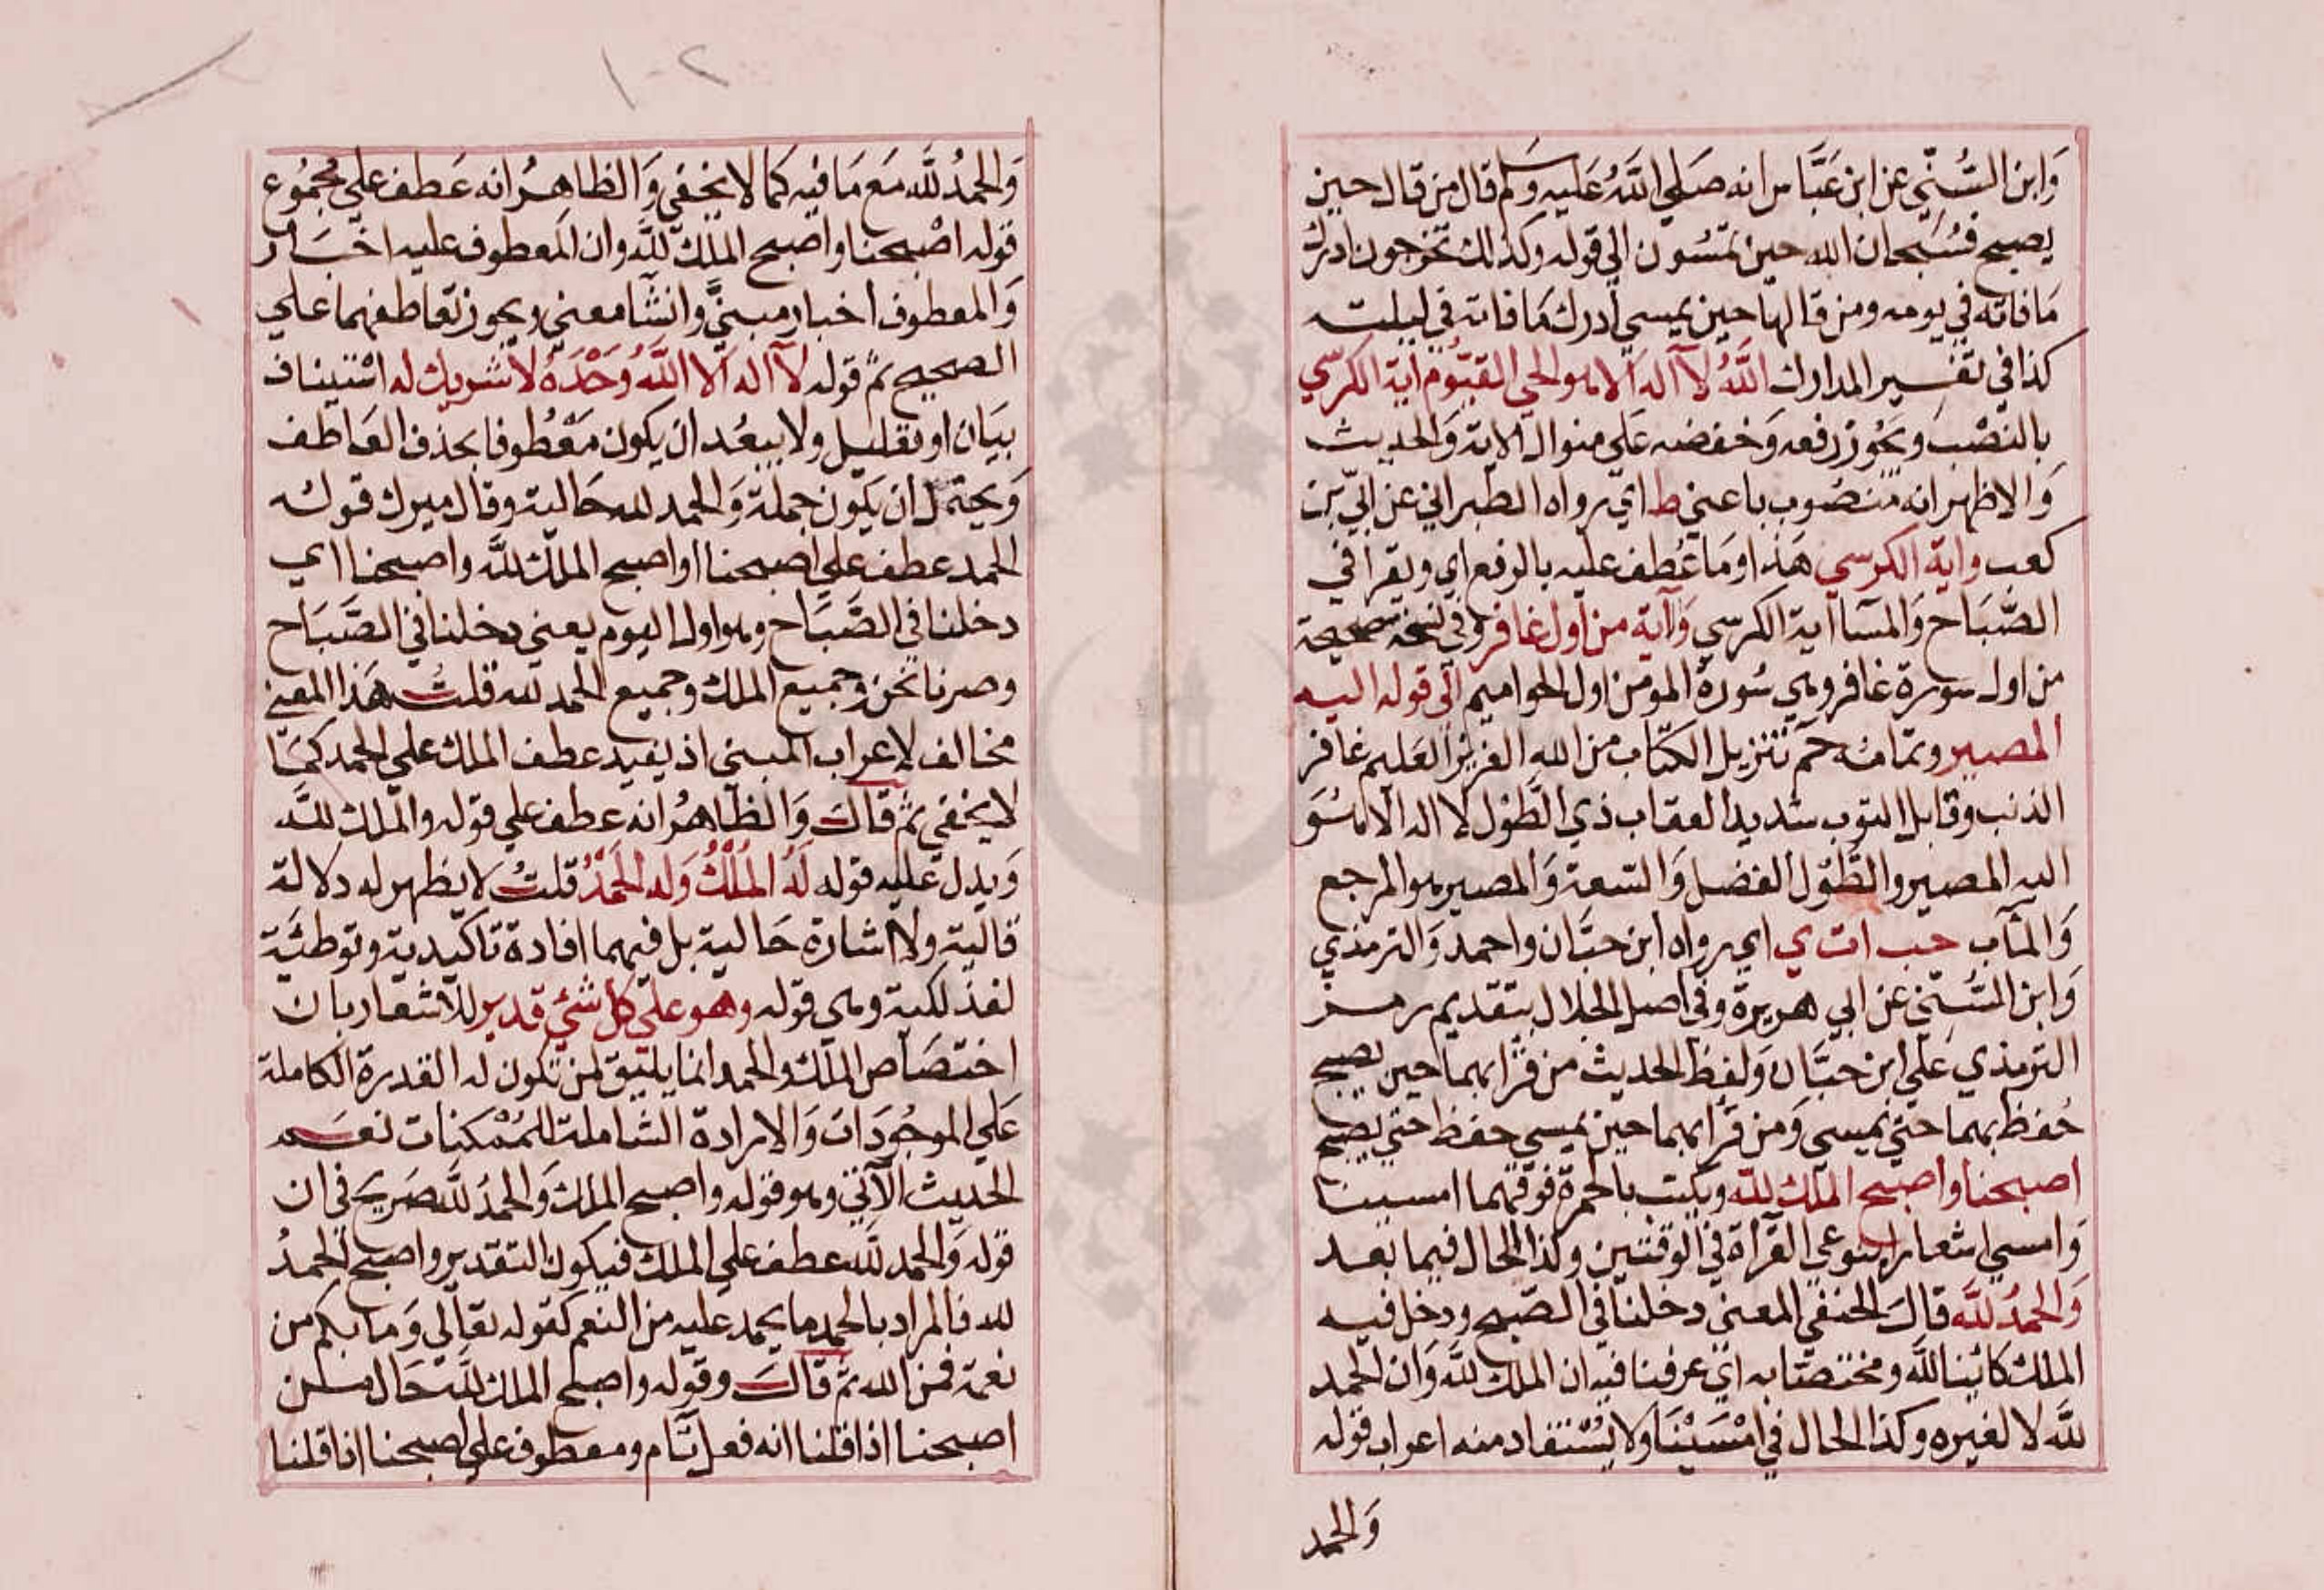 وَابن السُّنّي عن ابن عَبَّاس انه صَلي اللَّهُ عَليه وسلم قال من قال حين
يصبح فسُبحان الله حين تمسُون الي قوله وكذلك تخرجون ادرك
مَا فاته في يومه ومن قالها حين يمسي أدرك مَا فاته في ليلته
كذا في تفسير المدارك اللَّهُ لآ اله الا هو الحي القيّوُم اية الكرسي
بالنصْب ويَجُوز رفعه وَخفضه عَلي منوال الاية وَالحديث
وَالاظهر انه منصُوب باعني ط اي رواه الطبراني عن ابيّ بن
كعب واية الكرسي هَذا وما عُطف عليه بالرفع اي ويقرا في
الصَّبَاح وَالمسَآ اية الكرسي وَآية من أول غافر وفي نسخة صحيحة
من اول سورة غافر وهي سُورة المومن اول الحواميم الي قوله اليه
المصير وتمامه حم تنزيل الكتاب من الله العزيز العَليم غافر
الذنب وقابل التوب شديد العقاب ذي الطَّول لا اله الا هُوَ
اليه المصير والطَّوْل الفضل وَالسّعة وَالمصير هو المرجع
وَالمآب حب ات ي اي رواه ابن حبَّان واحمد وَالترمذي
وَابن السُّنّي عن ابي هريرة وفي اصل الجلال بتقديم رمز
الترمذي عَلي ابن حبَّان وَلفظ الحديث من قرا بهما حين يصبح
حُفظ بهما حتي يمسي وَمن قرا بهما حين يمسي حفظ حتي يصبح
اصبحنا واصبح الملك للَّه ويكتب بالحمرة فوقهما امسينا
وَامسي اشعارا بنوعي القرآة في الوقتين وكذا الحال فيما بعد
وَالحمدُ للَّه قالَ الحنفي المعني دخلنا في الصّبح ودخل فيه
الملك كائِنا للَّه ومختصّا به اي عرفنا فيه ان الملك للَّه وَان الحمد
للَّه لا لغيره وكذا الحال في امْسَيْنَا ولا يُسْتفاد منه اعراب قوله
وَالحمد
وَالحمدُ للَّه مَع مَا فيه كمَا لا يخفي وَالظاهرُ انه عَطف علي مجمُوع
قوله اصْبحنا واصبح الملك للَّه وان المَعطوف عليه اخبَار
وَالمعطوف اخبار مبنيً وانشآ معني ويجوز تعاطفهما علي
الصحيح ثم قوله لآ اله الا اللَّهُ وَحْدَهُ لا شريك له اسْتيناف
بيَان او تعليل ولا يبعُد ان يكون مَعْطُوفا بحذف العَاطف
وَيحتمل ان يكون جملة وَالحمد لله حَالية وقال ميرك قوله
الحمد عطف علي اصبحنا او اصبح الملك للَّه واصبحنا اي
دخلنا في الصَّبَاح وهو اول اليوم يعني دخلنا في الصَّبَاح
وصرنا نحن وجميع الملك وجميع الحمد لله قلت هَذا المعني
مخالف لاعراب المبني اذ يفيد عطف الملك علي الحمد كمَا
لا يخفي ثم قالَ وَالظاهرُ انه عطف علي قوله والملك للَّه
وَيدل عَليه قوله لَهُ المُلْكُ وَله الحَمْدُ قلتُ لا يظهر له دلالة
قالية ولا اشارة حَالية بل فيهما افادة تاكيدية وتوطئة
لفذلكية وهي قوله وهو علي كل شئي قدير للاشعار بان
اختصَاص الملك والحمد انما يليق لمن تكون له القدرة الكاملة
عَلي الموجُودَات وَالارادة الشاملة للمُمْكنات نعَم
الحديث الآتي وهو قوله واصبح الملك وَالحمدُ للَّه صَريح في ان
قوله وَالحمد للَّه عطف علي الملك فيكون التقدير واصبح الحمدُ
لله فالمراد بالحمد ما يحمد عليه من النعم كقوله تعالي وَما بكم من
نعمة فمن الله ثم قالَ وقوله واصبح الملك للَّه حَال من
اصبحنا اذا قلنا انه فعل تام ومعطوف علي اصبحنا اذا قلنا